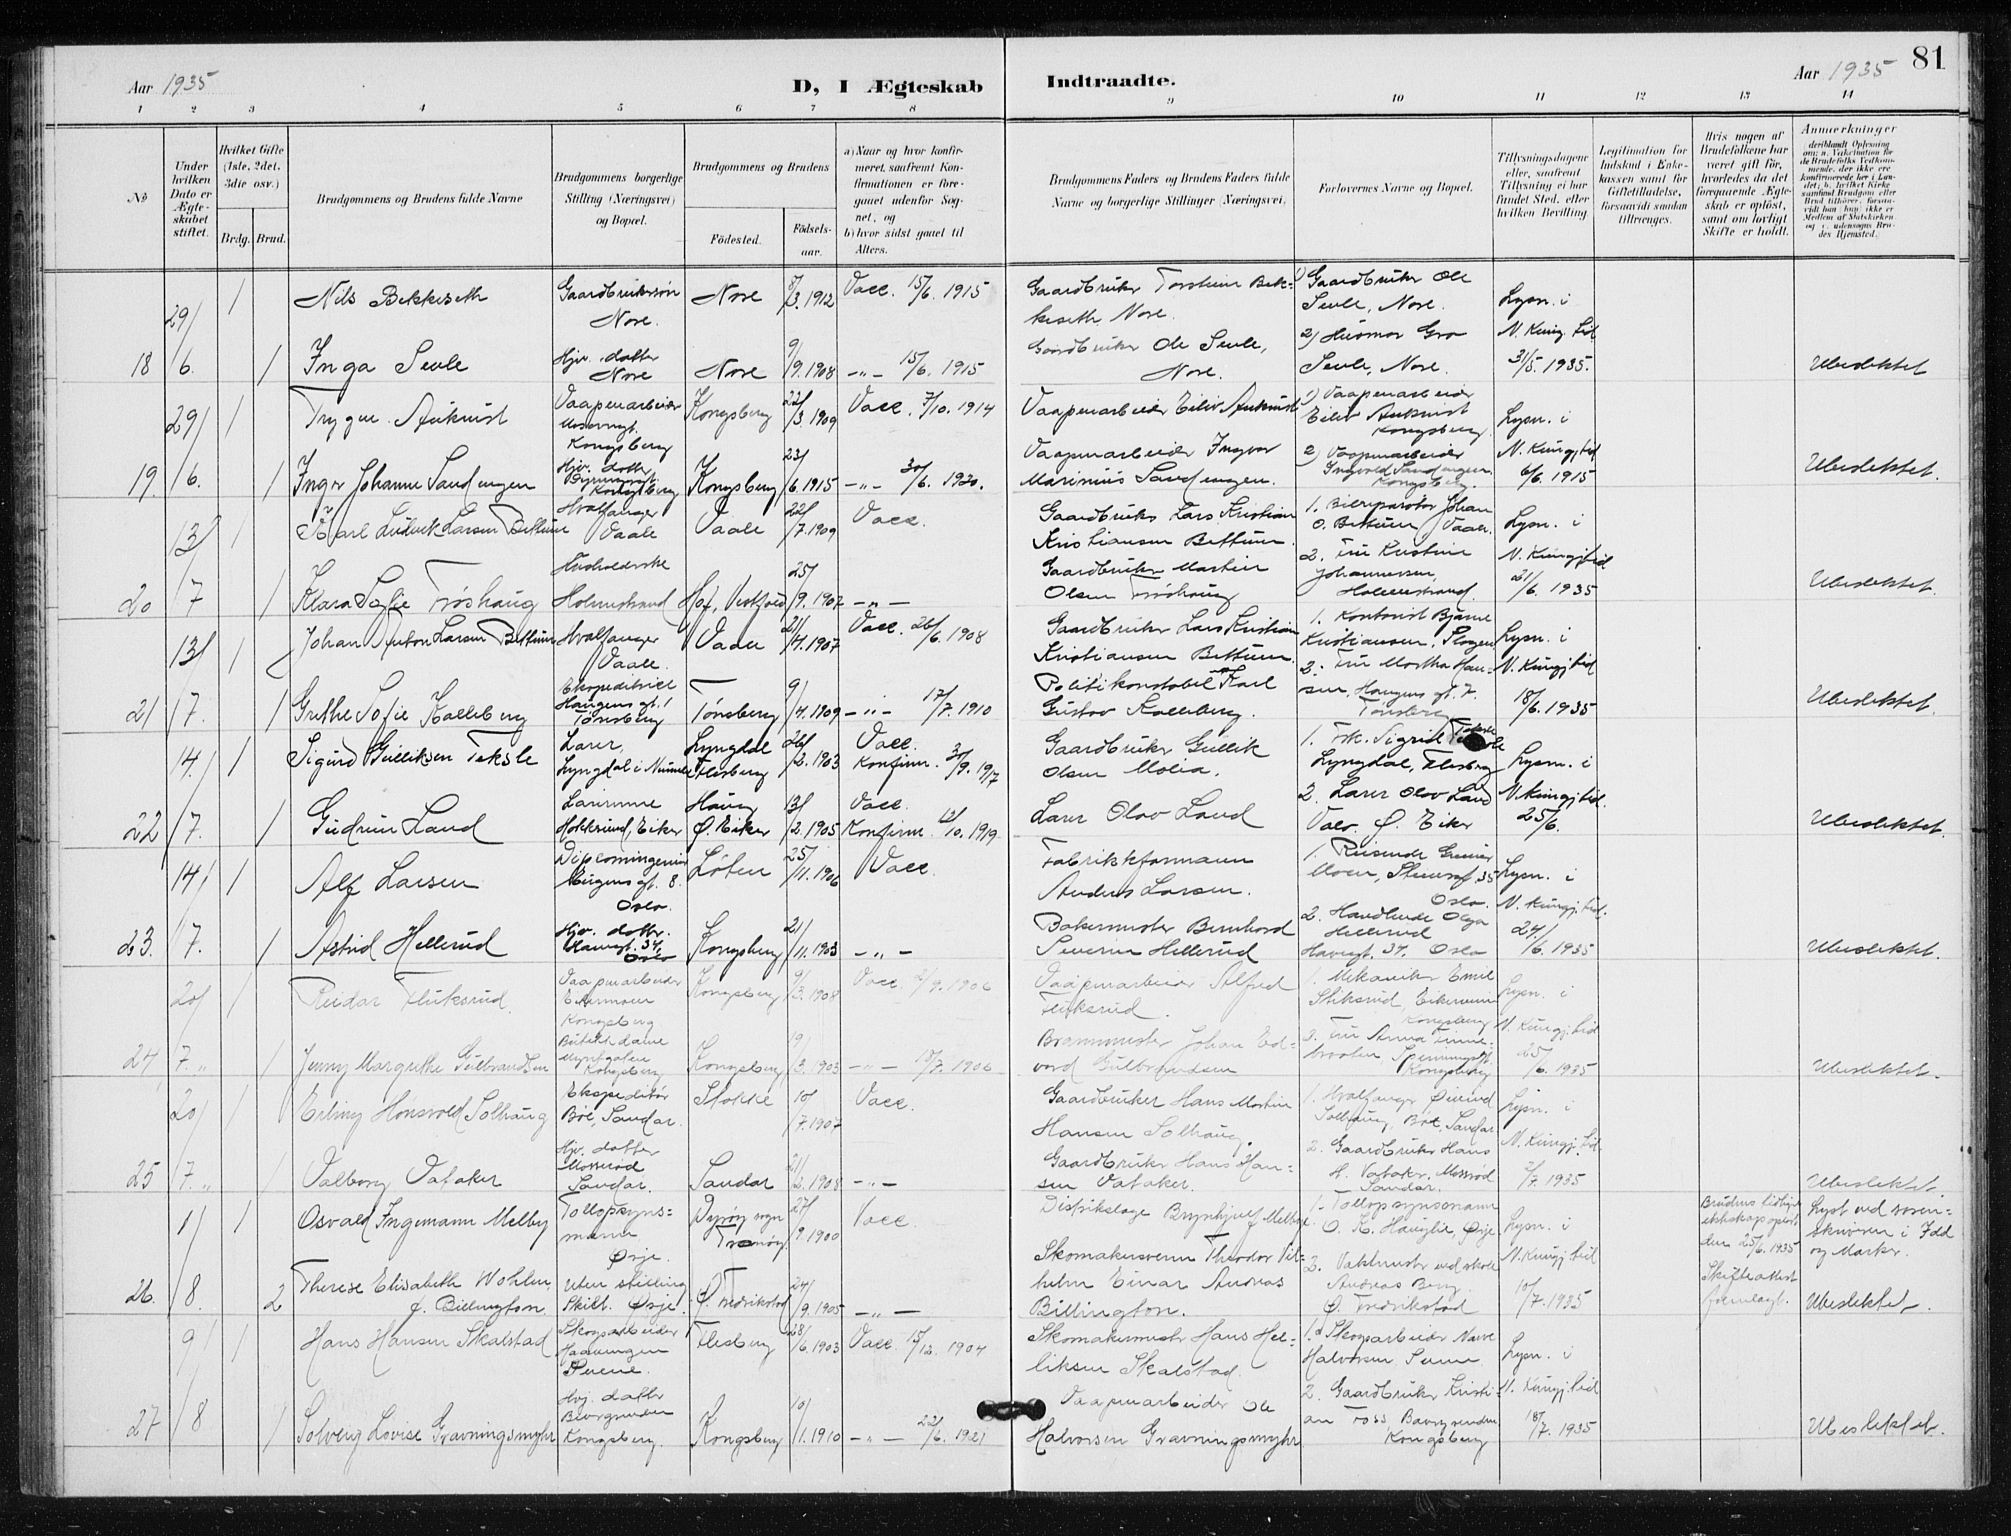 81
Aar 1935
D, I Ægteskab
Indtraadte.
Aar 1935
1 2 3 4 5 6 7 8 9 10 11 12 13 14
No
Under hvilken Dato er Ægteskabet stiftet.
Hvilket Gifte (1ste, 2det, 3die osv.)
Brdg. Brud.
Brudgommens og Brudens fulde Navne
Brudgommens borgerlige Stilling (Næringsvei) og Bopæl.
Brudgommens og Brudens
Födested.
Födselsaar.
a) Naar og hvor konfirmeret, saafremt Konfirmationen er foregaaet udenfor Sognet, og
b) hvor sidst gaaet til Alters.
Brudgommens Faders og Brudens Faders fulde Navne og borgerlige Stillinger (Næringsvei).
Forlovernes Navne og Bopæl.
Tillysningsdagene eller, saafremt Tillysning ei har fundet Sted, efter hvilken Bevilling
Legitimation for Indskud i Enkekassen samt for Giftetilladelse, forsaavidt saadan tiltrænges.
Hvis nogen af Brudefolkene har været gift för, hvorledes da det foregaaende Ægteskab er oplöst, samt om lovligt Skifte er holdt.
Anmerkninger
29/6. 1 Nils Bekkeseth Gaardbrukersön Nore. Nore 8/3. 1912 Vacc. 15/6. 1915 Gaardbruker Torstein Bekkeseth, Nore. 1) Gaardbruker Ole Seule, Nore. Lysn. i
18 1 Inga Seule Hjv. datter Nore Nore 9/9. 1908 -"- 15/6. 1915 Gaardbruker Ole Seule, Nore. 2) Husmor Gro Seule, Nore. N. Kung. tid 31/5. 1935. Ubeslektet
29/6. 1 Trygve Vaapenarbeider Kongsberg Kongsberg 22/3. 1909 Vacc. 7/10. 1914 Vaapenarbeider Eiliv 1) Vaapenarbeider Eiliv Kongsberg Lysn. i
19. 1 Inger Johanne Sandengen Hjv. datter Kongsberg Kongsberg 23/6. 1915 -"- 30/6. 1920. Vaapenarbeider Ingvar Marinius Sandengen. 2) Vaapenarbeider Ingvald Sandengen Kongsberg. N. Kungj. tid 6/6. 1915 Ubeslektet.
13/7 1 Karl Ludvik Larsen Bettum Hvalfanger Vaale Vaale 22/7. 1909 Vacc. Gaardbruker Lars Kristian Kristiansen Bettum. 1. Johan O. Bettum, Vaale. Lysn. i
20 1 Klara Sofie Frøshaug Husholderske Holmestrand Hof, Vestfold 25/9. 1907 -"- Gaardbruker Martin Olsen Frøshaug 2. Fru Kristine Johannessen, Holmestrand. N. Kungj. tid 21/6. 1935 Ubeslektet.
13/7. 1 Johan Anton Larsen Bettum Hvalfanger Vaale. Vaale 21/4. 1907 Vacc. 26/6. 1908 Gaardbruker Lars Kristian Kristiansen Bettum. 1. Kontorist Bjarne Kristiansen, Slagen Lysn. i
21 1 Grethe Sofie Kalleberg Ekspeditrice Haugens gt. 1 Tønsberg Tønsberg 9/4. 1909 -"- 17/7. 1910 Politikonstabel Karl Gustav Kalleberg. 2. Fru Martha Hansen, Haugens gt. 7. Tønsberg N. Kungj. tid 18/6. 1935 Ubeslektet.
14/7. 1 Sigurd Gulliksen Teksle Lærer, Lyngdal i Numedal Lyngdal Flesberg 26/2. 1903 Vacc. Konfirm. 30/9. 1917 Gaardbruker Gullik Olsen Molia. 1. Frk. Sigrid Teksle Lyngdal, Flesberg Lysn. i
22 1 Gudrun Land Lærerinne Hokksund, Eiker Haug Ø. Eiker 13/2. 1905 Vacc. Konfirm. 12/10. 1919 Lærer Olav Land 2. Lærer Olav Land Ø. Eiker N. Kungj. tid. 25/6. Ubeslektet.
14/7. 1 Alf Larsen Diplomingeniør gt. 8. Oslo. Løten 25/11. 1906 Vacc. Fabrikkformann Anders Larsen. 1. Reisende Gunnar Moen, 35 Oslo. Lysn. i
23. 1 Astrid Hellerud Hjv. datter. 34, Oslo Kongsberg 21/11. 1903 -"- Bakermester Bernhard Severin Hellerud 2. Handlende Olga Hellerud 34. Oslo N. Kungj. tid. 24/6. 1935 Ubeslektet.
20/7. 1 Reidar Fluksrud. Vaapenarbeider Kongsberg Kongsberg 9/3. 1908 Vacc. 1906 Vaapenarbeider Alfred Fluksrud. 1. Mekaniker Emil Stiksrud, Eikerveien Kongsberg Lysn. i
24 1 Jenny Margrethe Gulbrandsen Butikkdame Myntgaten Kongsberg Kongsberg 19/3. 1903 -"- 15/7. 1906 Brannmester Johan Edvard Gulbrandsen 2. Fru Anna Kongsberg N. Kungj. tid 25/6. 1935 Ubeslektet.
20/7. 1 Erling Hønsvold Solhaug Ekspeditør Bøe, Sandar. Stokke 10/7. 1907 Vacc. Gaardbruker Hans Martin Hansen Solhaug. 1. Hvalfanger Øivind Solhaug, Bøe, Sandar Lysn. i
25 1 Valborg Vataker Hjv. datter Mosserød Sandar. Sandar 21/2. 1908 -"- Gaardbruker Hans Hansen Vataker. 2. Gaardbruker Hans H. Vataker, Mosserød Sandar. N. Kungj. tid. 2/7. 1935 Ubeslektet.
1/8. 1 Osvald Ingemann Melby Tollopsynsmann Ørje. Dyrøy sogn Tranøy. 27/9. 1900 Vacc. Distriktslæge Brynhjulf Melbye 1. Tollopsynsmann O. K. Hauglie, Ørje Lysn. i Brudens tidligere ekteskap opløst den 25/6. 1935 Lyst ved sorenskriveren i Idd og Marker.
26. 2 Therese Elisabeth Wohlen, f. Billington. Uten stilling Skilt. Ørje. Ø. Fredrikstad 24/9. 1905 -"- Skomakersvenn Theodor Vilhelm Einar Andreas Billington. 2. Vaktmester ved skole Andreas Berg. Ø. Fredrikstad N. Kungj. tid 10/7. 1935 Skifteattest fremlagt. Ubeslektet.
9/8 1 Hans Hansen Skalstad Skogsarbeider Haavengen Svene. Flesberg 28/6. 1903 Vacc. 15/12. 1904 Skomakermester Hans Helliksen Skalstad. 1. Skogsarbeider Narve Halvorsen, Svene. Lysn. i
27 1 Solveig Lovise Gravningsmyhr Hvj. datter Kongsberg. Kongsberg 10/1. 1910 -"- 22/6. 1921 Vaapenarbeider Ole Halvorsen Gravningsmyhr 2. Gaardbruker Kristian Foss Kongsberg N. Kungj. tid 18/7. 1935 Ubeslektet.